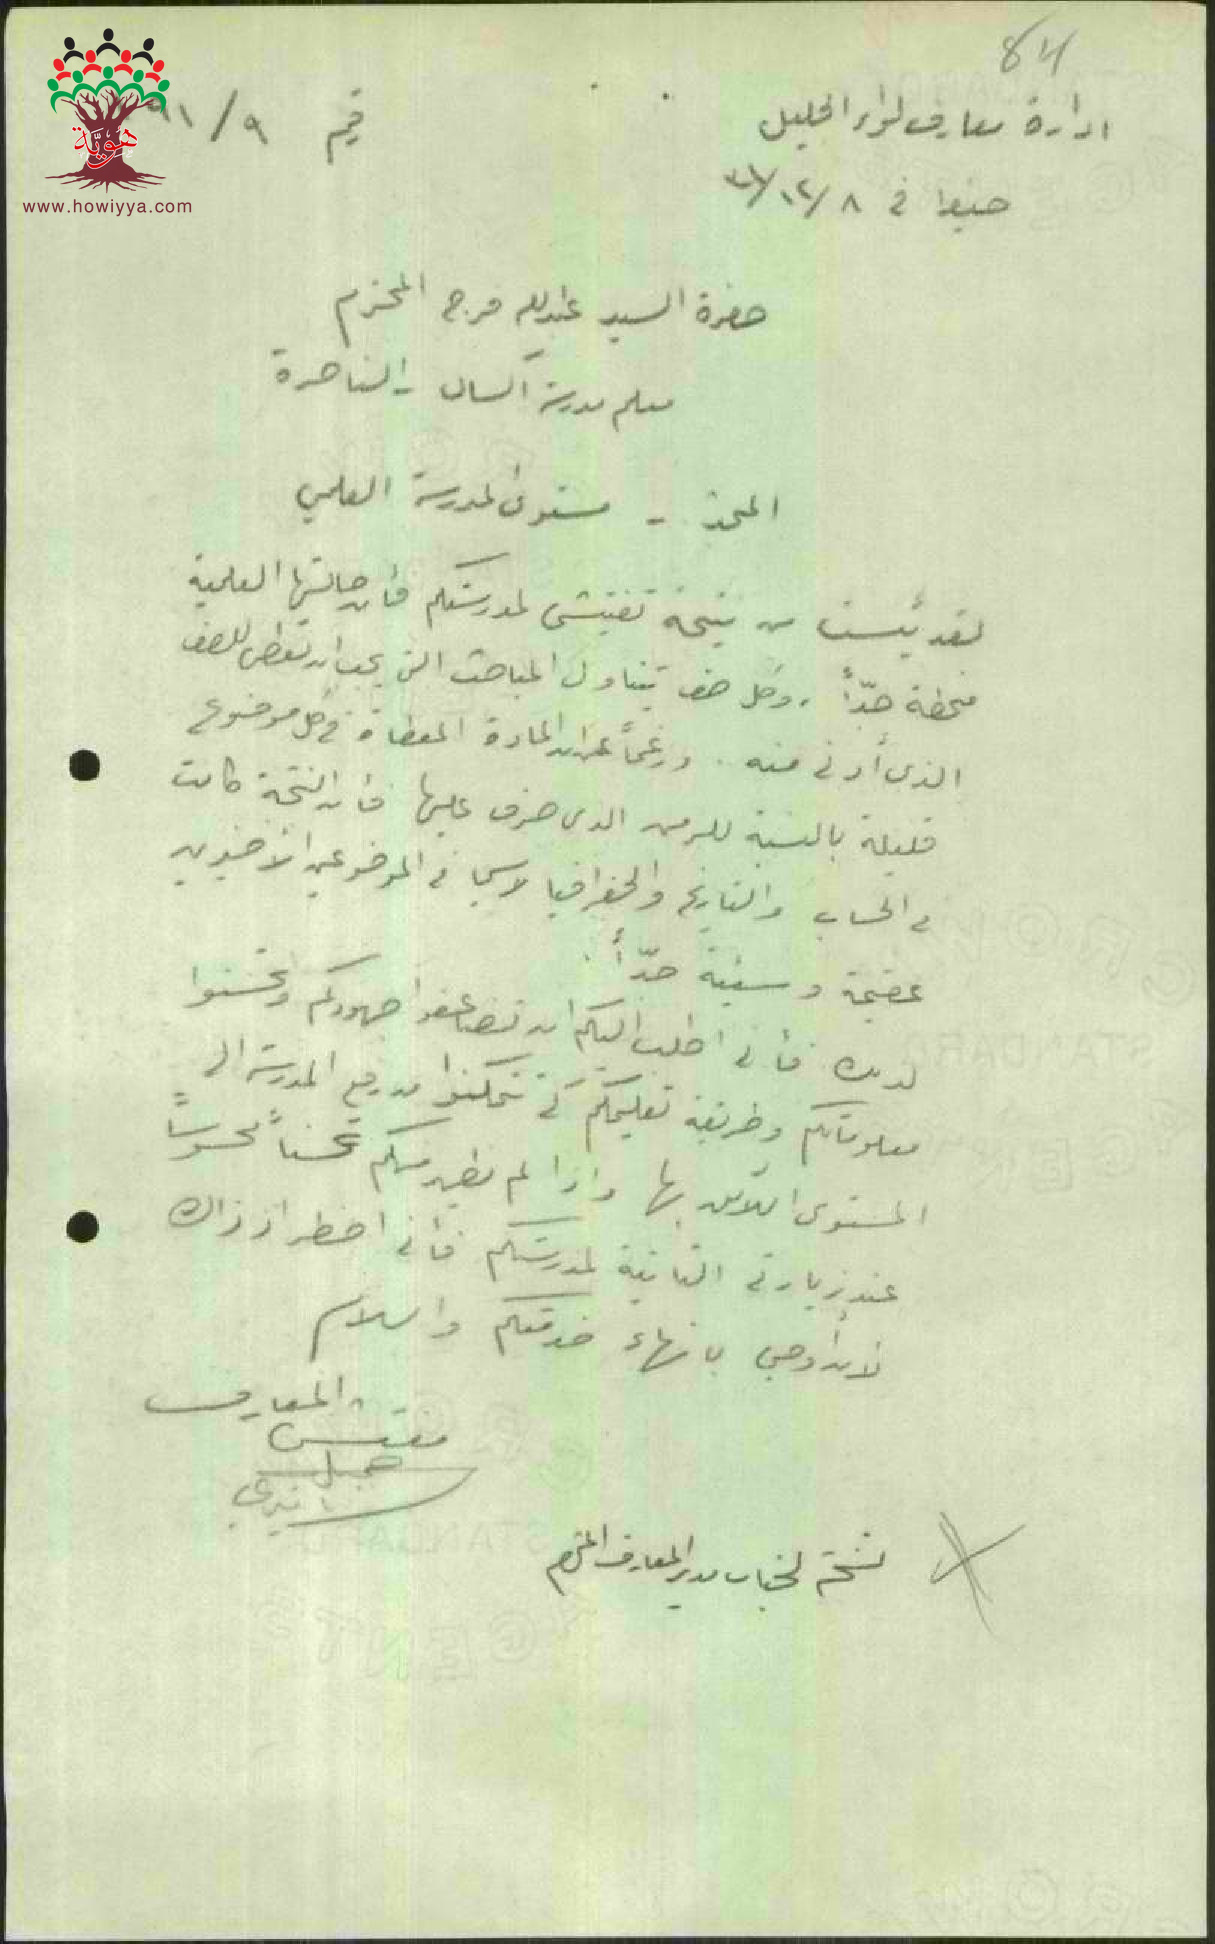 84
ادارة معارف لواء الجليل
حيفا في ٨/١٢/
رقم ٩/
هوية
www.howiyya.com
حضرة السيد عبدالله فرج المحترم
معلم مدرسة اكسال - الناصرة
المبحث - مستوى المدرسة العلمي
لقد يئست من نتيجة تفتيشي لمدرستكم فأن حالتها العلمية
منحطة جدّاً. وكل صف يتناول المباحث التي يجب ان تعطى للصف
الذي أدنى منه. ورغماً عن ان المادة المعطاة في كل موضوع
قليلة بالنسبة للزمن الذي صرف عليها فأن النتيجة كانت
في الحساب والتاريخ والجغرافيا لاسيما في الموضوعين الأخيرين
عقيمة وسيئة جدّاً.
لذلك فأني اطلب اليكم ان تضاعفوا جهودكم وتحسنوا
معلوماتكم وطريقة تعليمكم كي تتمكنوا من رفع المدرسة الى
المستوى اللائق بها واذا لم يظهر منكم تحسناً محسوساً
عند زيارتي الثانية لمدرستكم فأني اضطر اذ ذاك
لان أوصي بانهاء خدمتكم والسلام
مفتش المعارف
جميل
نسخة لجناب مدير المعارف المحترم